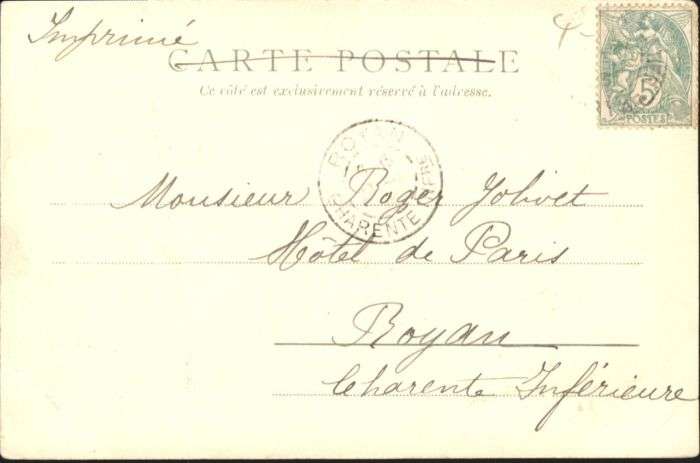 Imprimé
CARTE POSTALE
Ce côté est exclusivement réservé à l'adresse.
5
POSTES
ROYAN
CHARENTE INFRE
Monsieur Roger Jolivet
Hôtel de Paris
Royan
Charente Inférieure